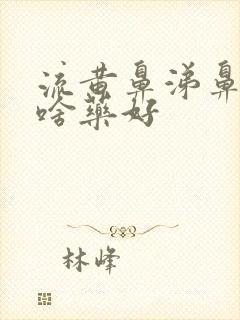 流黄鼻涕鼻
啥药好
林峰